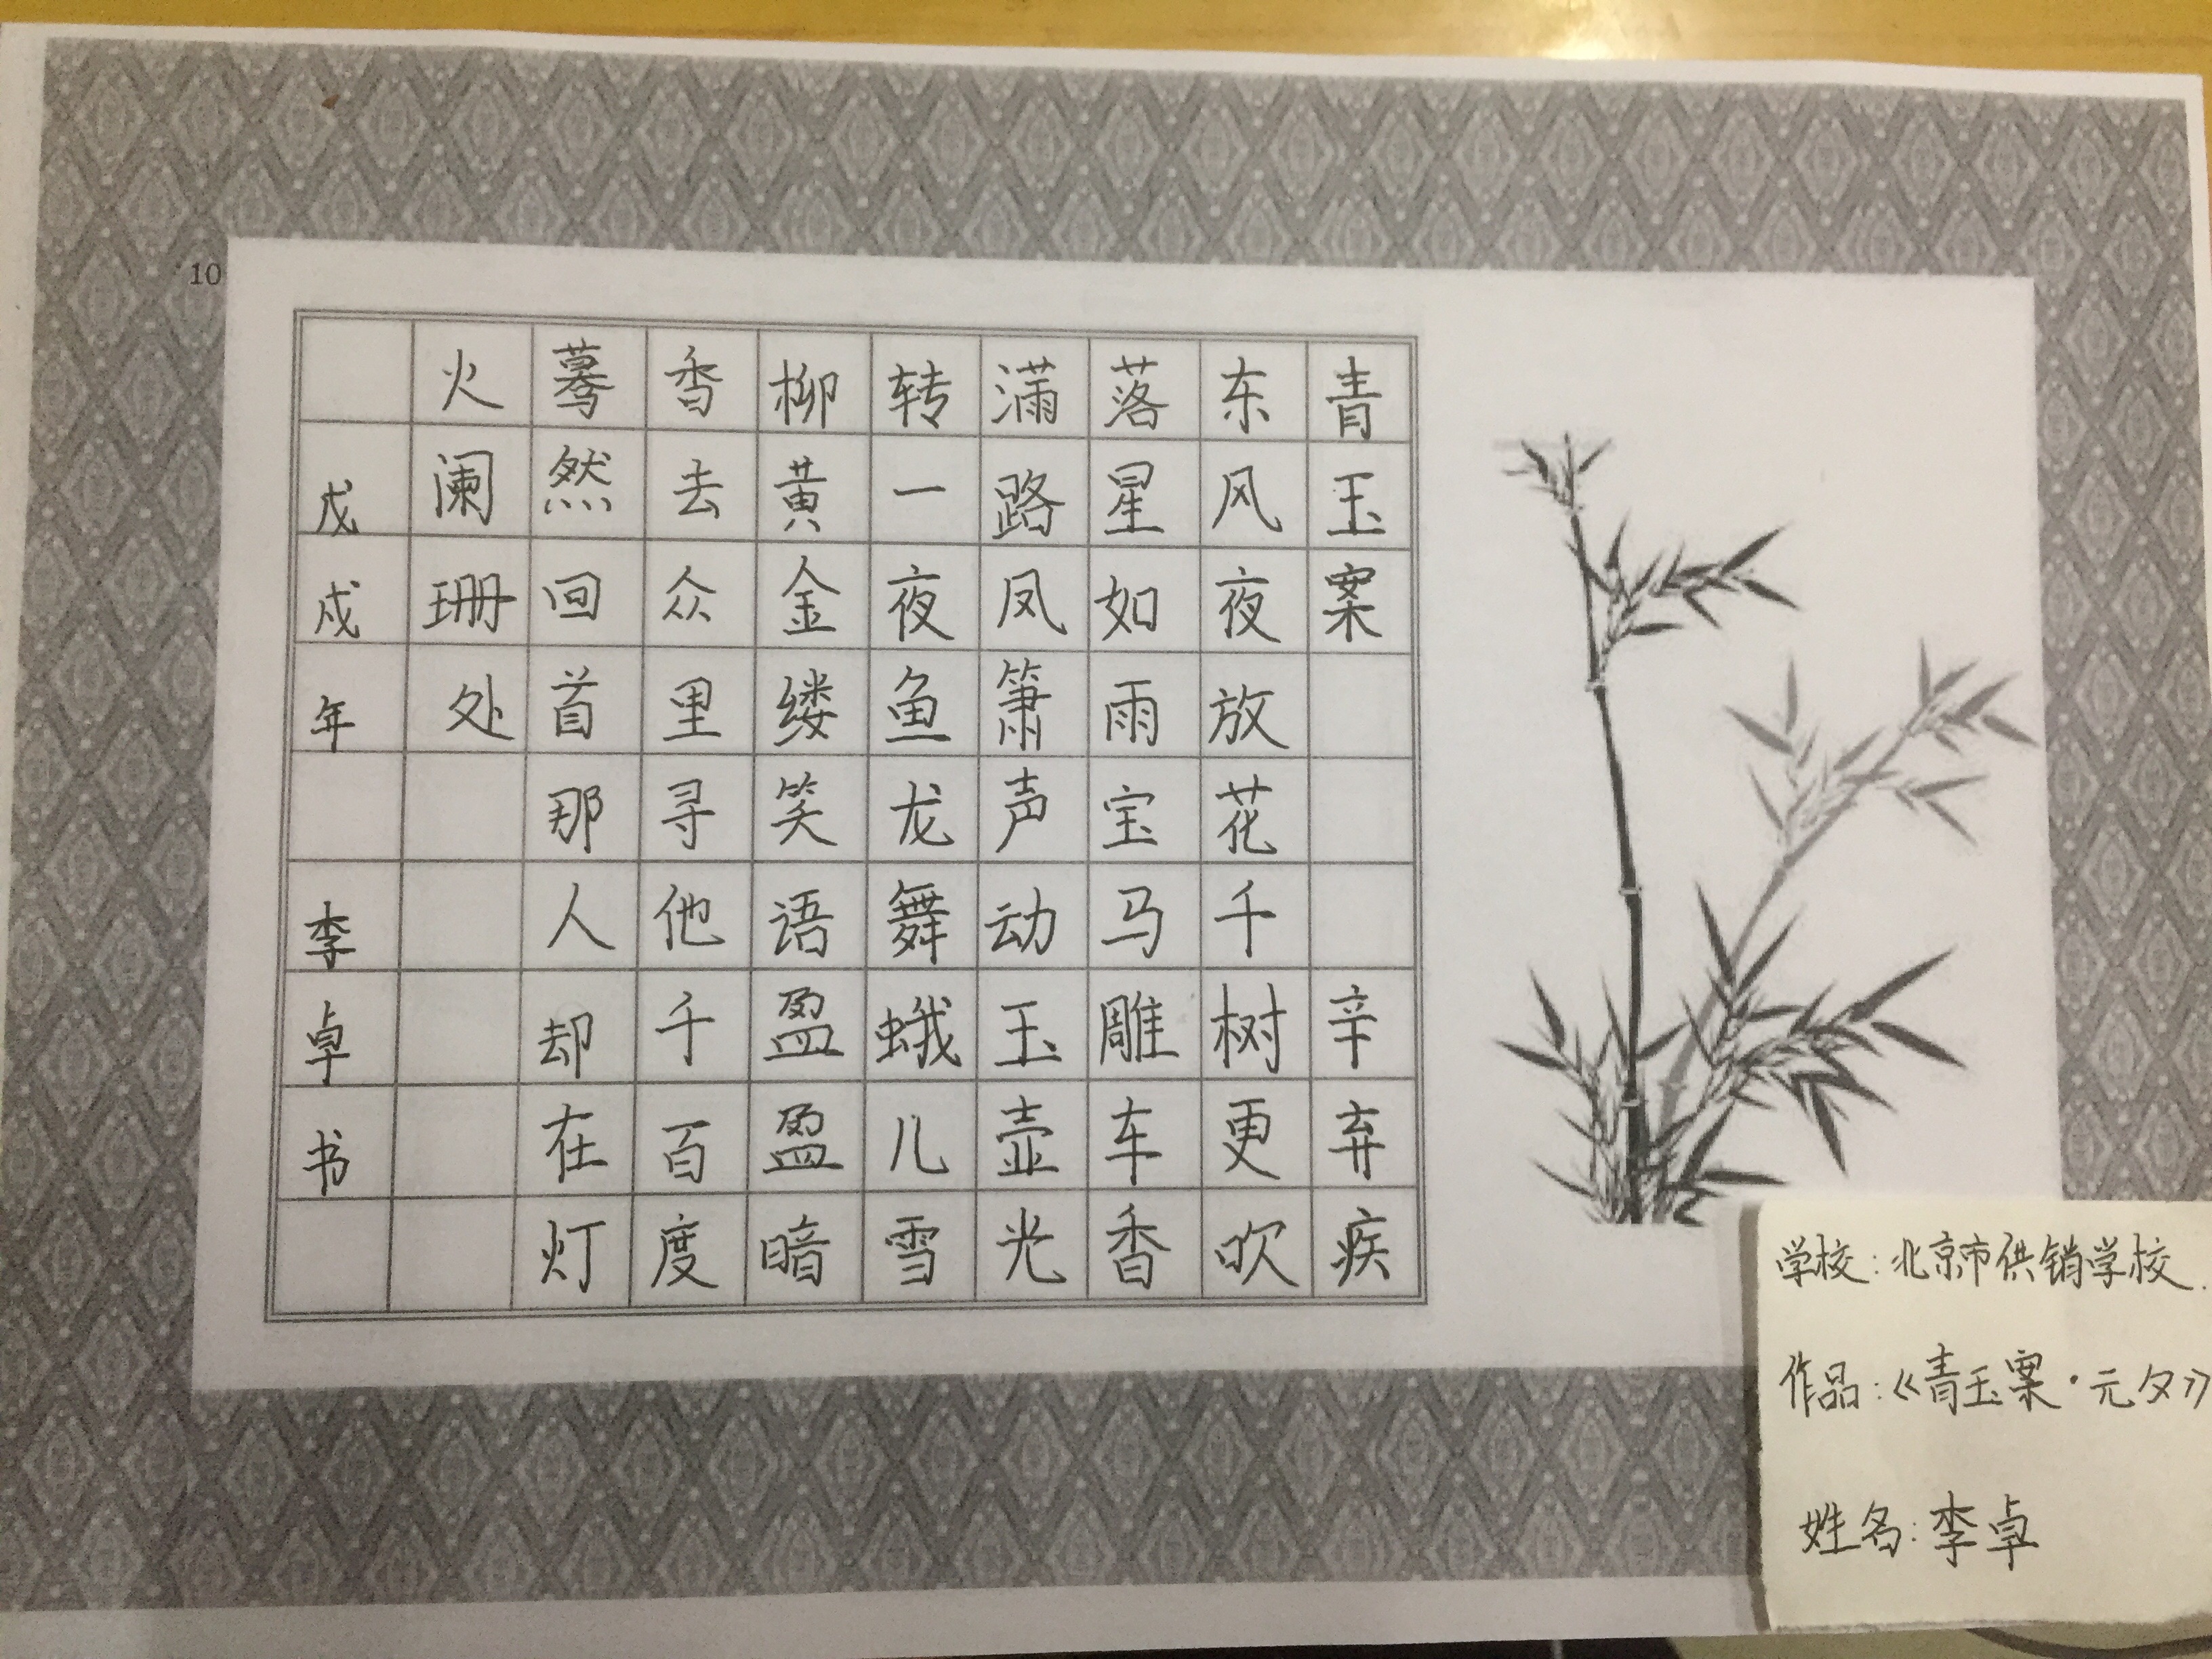 10
青玉案 辛弃疾
东风夜放花千树更吹
落星如雨宝马雕车香
满路凤箫声动玉壶光
转一夜鱼龙舞蛾儿雪
柳黄金缕笑语盈盈暗
香去众里寻他千百度
蓦然回首那人却在灯
火阑珊处
戊戌年 李卓书
学校:北京市供销学校.
作品:《青玉案·元夕》
姓名:李卓